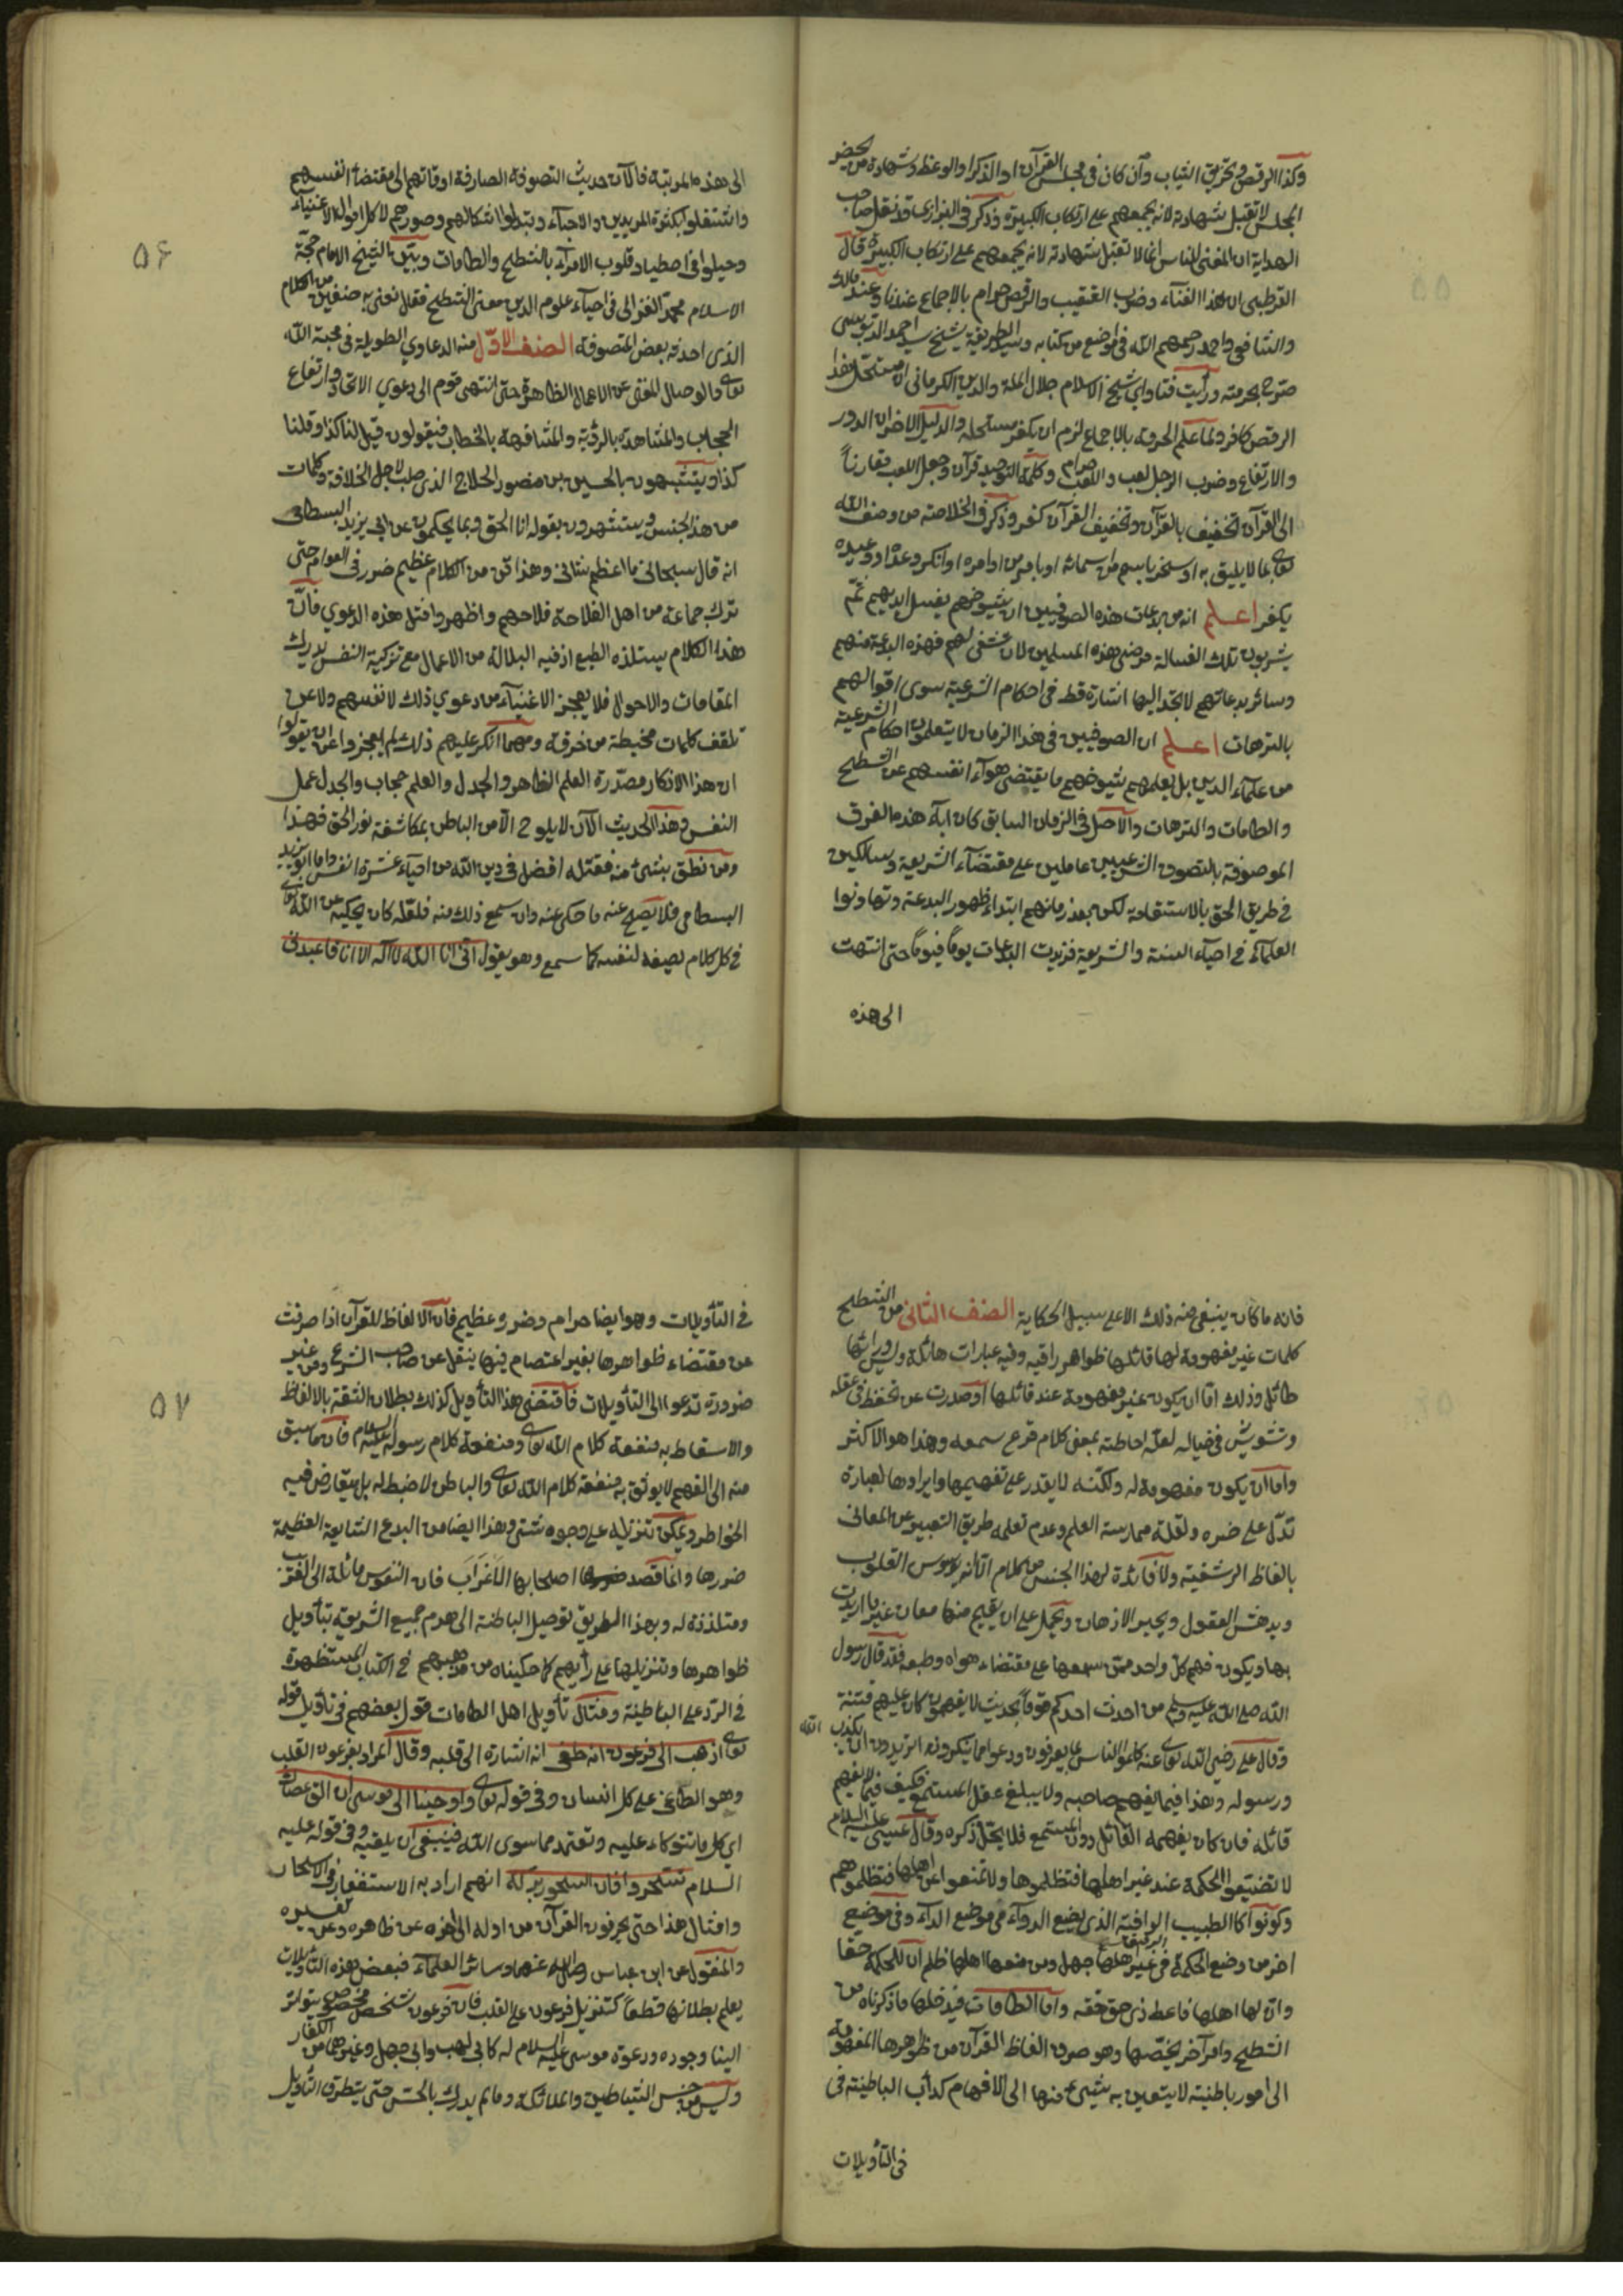 وكذا الرقص وتخريق الثياب وان كان في مجلس القرآن او الذكر او الوعظ وشهادة من يحضر
المجلس لا تقبل شهادته لانه يجمعهم على ارتكاب الكبيرة وذكر في البزازى قد نقل صاحب
الهداية ان المغنى للناس انما لا تقبل شهادته لانه يجمعهم على ارتكاب الكبيرة قال
القرطبى ان هذا الغناء وضرب القضيب والرقص حرام بالاجماع عندنا وعند مالك
والشافعى واحمد رحمهم الله في مواضع من كتابه وسيد الطريقة شيخ احمد
صرح بحرمته ورأيت فتاوي شيخ الاسلام جلال الملة والدين الكرمانى ان مستحل هذا
الرقص كافر ولما علم الحرمة بالاجماع لزم ان يكفر مستحله والدليل الاخر ان الدور
والارتفاع وضرب الرجل لعب واللعب حرام وكلمة التوحيد قرآن وجعل اللعب مقارناً
الى القرآن تخفيف بالقرآن وتخفيف القرآن كفر وذكر في الخلاصة من وصف الله
تعالى بما لا يليق به او سخر باسم من اسمائه او بامر من اوامره او انكر وعده او وعيده
يكفر اعلم انه من بدعات هذه الصوفيين ان شيوخهم يغسل ايديهم ثم
يشربون تلك الغسالة مرضى هذه المسلمين لان تشفى لهم فهذه البدعة منهم
وسائر بدعاتهم لا تجد اليها اشارة قط في احكام الشرعية سوى اقوالهم
بالترهات اعلم ان الصوفيين في هذا الزمان لا يتعلمون احكام الشرعية
من علماء الدين بل يعلمهم شيوخهم ما يقتضى هواء انفسهم عن الشطح
والطامات والترهات والاصل في الزمان السابق كان اباء هذه الفرق
الموصوفة بالتصوف الشرعيين عاملين على مقتضاء الشريعة وسالكين
في طريق الحق بالاستقامة لكن بعد زمانهم ابتداء ظهور البدعة وتهاونوا
العلماء في احياء السنة والشريعة فزيدت البدعات يوماً فيوماً حتى انتهت
الى هذه
٥٦
الى هذه المرتبة فالآن حديث التصوفة الصارفة اوقاتهم الى مقتضاء انفسهم
واشتغلوا بكثرة المريدين والاحباء وتبدلوا اشكالهم وصورهم لاكل اموال الاغنياء
وحيلوا في اصطياد قلوب الامراء بالشطح والطامات وبيّن الشيخ الامام حجة
الاسلام محمد الغزالى في احياء علوم الدين معنى الشطح فقال نعنى به صنفين من الكلام
الذى احدثه بعض المتصوفة الصنف الاول منه الدعاوي الطويلة في محبة الله
تعالى والوصال المغنى عن الاعمال الظاهرة حتى انتهى قوم الى دعوي الاتحاد وارتفاع
الحجاب والمشاهدة بالرؤية والمشافهة بالخطاب فيقولون قيل لنا كذا وقلنا
كذا ويتشبهون بالحسين بن منصور الحلاج الذى صلب لاجل وكلمات
من هذا الجنس ويستشهدون بقوله انا الحق وبما يحكون عن ابي يزيد البسطامى
انه قال سبحانى ما اعظم شانى وهذا فن من الكلام عظيم ضرر في العوام حتى
ترك جماعة من اهل الفلاحة فلاحهم واظهروا مثل هذه الدعوي فان
هذا الكلام يستلذه الطبع اذ فيه البطالة من الاعمال مع تزكية النفس بدرك
المقامات والاحوال فلا يعجز الاغبياء من دعوي ذلك لانفسهم ولا عن
تلقف كلمات مخبطة مزخرفة ومهما انكر عليهم ذلك لم يعجزوا عن ان يقولوا
ان هذا الانكار مصدره العلم الظاهر والجدل والعلم حجاب والجدل عمل
النفس وهذا الحديث الآن لا يلوح الا من الباطن بمكاشفة نور الحق فهذا
ومن نطق بشئ منه فقتله افضل في دين الله من احياء عشرة انفس واما ابو يزيد
البسطامى فلا يصح عنه ما حكى عنه وان سمع ذلك منه فلعله كان يحكيه عن الله تعالى
في كل كلام يصيفه لنفسه كما سمع وهو يقول انى انا الله لا اله الا انا فاعبدنى
فانه ما كان ينبغى منه ذلك الا على سبيل الحكاية الصنف الثانى من الشطح
كلمات غير مفهومة لها قائلها ظواهر رائقة وفيه عبارات هائلة وليس ورائها
طائل وذلك اما ان يكون غير مفهومة عند قائلها او صدرت عن في عقله
وتشويش في خياله لعلة احاطته بمعنى كلام قرع سمعه وهذا هو الاكثر
واما ان يكون مفهومة له ولكنه لا يقدر على تفهيمها وايرادها لعبارة
تدل على ضميره ولقلة ممارسته العلم وعدم تعلمه طريق التعبير عن المعانى
بالفاظ الرشيقة ولا فائدة لهذا الجنس من الكلام الا انه يوسوس القلوب
ويدهش العقول ويحير الاذهان ويحمل على ان يفهم منها معان غير ما اريدت
بها ويكون فهم كل واحد ممن سمعها على مقتضاء هواه وطبعه فقد قال رسول
الله صلى الله عليه وسلم من احدث احدكم قوماً بحديث لا يفهمون كان عليهم فتنة
وقال على رضى الله تعالى عنه كلموا الناس بما يعرفون ودعوا ما ينكرونه اتريدون ان يكذب الله
ورسوله وهذا فيما يفهم صاحبه ولا يبلغ عقل المستمع فكيف فيما لا يفهم
قائله فان كان يفهمه القائل دون المستمع فلا يحل ذكره وقال عيسى عليه السلام
لا تضيعوا الحكمة عند غير اهلها فتظلموها ولا تمنعوا عن اهلها فتظلموهم
وكونوا كالطبيب الذى يضع الدواء في موضع الداء وفي موضع
اخر من وضع الحكمة في غير اهلها جهل ومن منعها اهلها ظلم ان للحكمة حقا
وان لها اهلها فاعط ذى حق حقه واما الطامات فيدخلها ما ذكرناه من
الشطح وامر آخر يخصها وهو صرف الفاظ القرآن من ظواهرها المفهومة
الى امور باطنية لا يتعين به شيئ منها الى الافهام كدأب الباطنية في
في التأويلات
٥٧
في التأويلات وهو ايضا حرام وضرر عظيم فان الالفاظ للقرآن اذا صرفت
عن مقتضاء ظواهرها بغير اعتصام فيها ينقل عن صاحب الشرع ومن غير
ضرورة تدعوا الى التأويلات فاقتضى هذا التأويل كذلك بطلان الثقة بالالفاظ
والاسقاط به منفعة كلام الله تعالى ومنفعة كلام رسوله عليه السلام فان ما سبق
منه الى الفهم لا يوثق به منفعة كلام الله تعالى والباطن لا ضبط له بل يتعارض فيه
الخواطر ويمكن تنزيله على وجوه شتى وهذا ايضا من البدع الشايعة العظيمة
ضررها وانما قصد اصحابها الاغراب فان النفوس مائلة الى الغريب
ومتلذذة له وبهذا الطريق توصيل الباطنة الى هدم جميع الشريعة بتأويل
ظواهرها وتنزيلها على رأيهم كما حكيناه من مذهبهم في الكتاب المستظهرة
في الرد على الباطنية ومثال تأويل اهل الطامات قول بعضهم في تأويل قوله
تعالى اذهب الى فرعون انه طغى انه اشارة الى قلبه وقال المراد بفرعون القلب
وهو الطاغى على كل انسان وفى قوله تعالى واوحينا الى موسى ان الق عصاك
اي كل ما تتوكاء عليه وتعتمد مما سوى الله فينبغى ان يلقيه وفى قوله عليه
السلام تسحروا فان السحور بركة انهم اراد به الاستغفار في الاسحار
وامثال هذا حتى يحرفون القرآن من اوله الى اخره عن ظاهره وعن تفسيره
والمنقول عن ابن عباس رضى الله عنهما وسائر العلماء فبعض هذه التأويلات
يعلم بطلانها قطعاً كتنزيل فرعون على القلب فان فرعون شخص مخصوص يتواتر
الينا وجوده ودعوة موسى عليه السلام له كابى لهب وابى جهل وغيرهما من الكفار
وليس من جنس الشياطين والملائكة وما لم يدرك بالحس حتى يتطرق التأويل